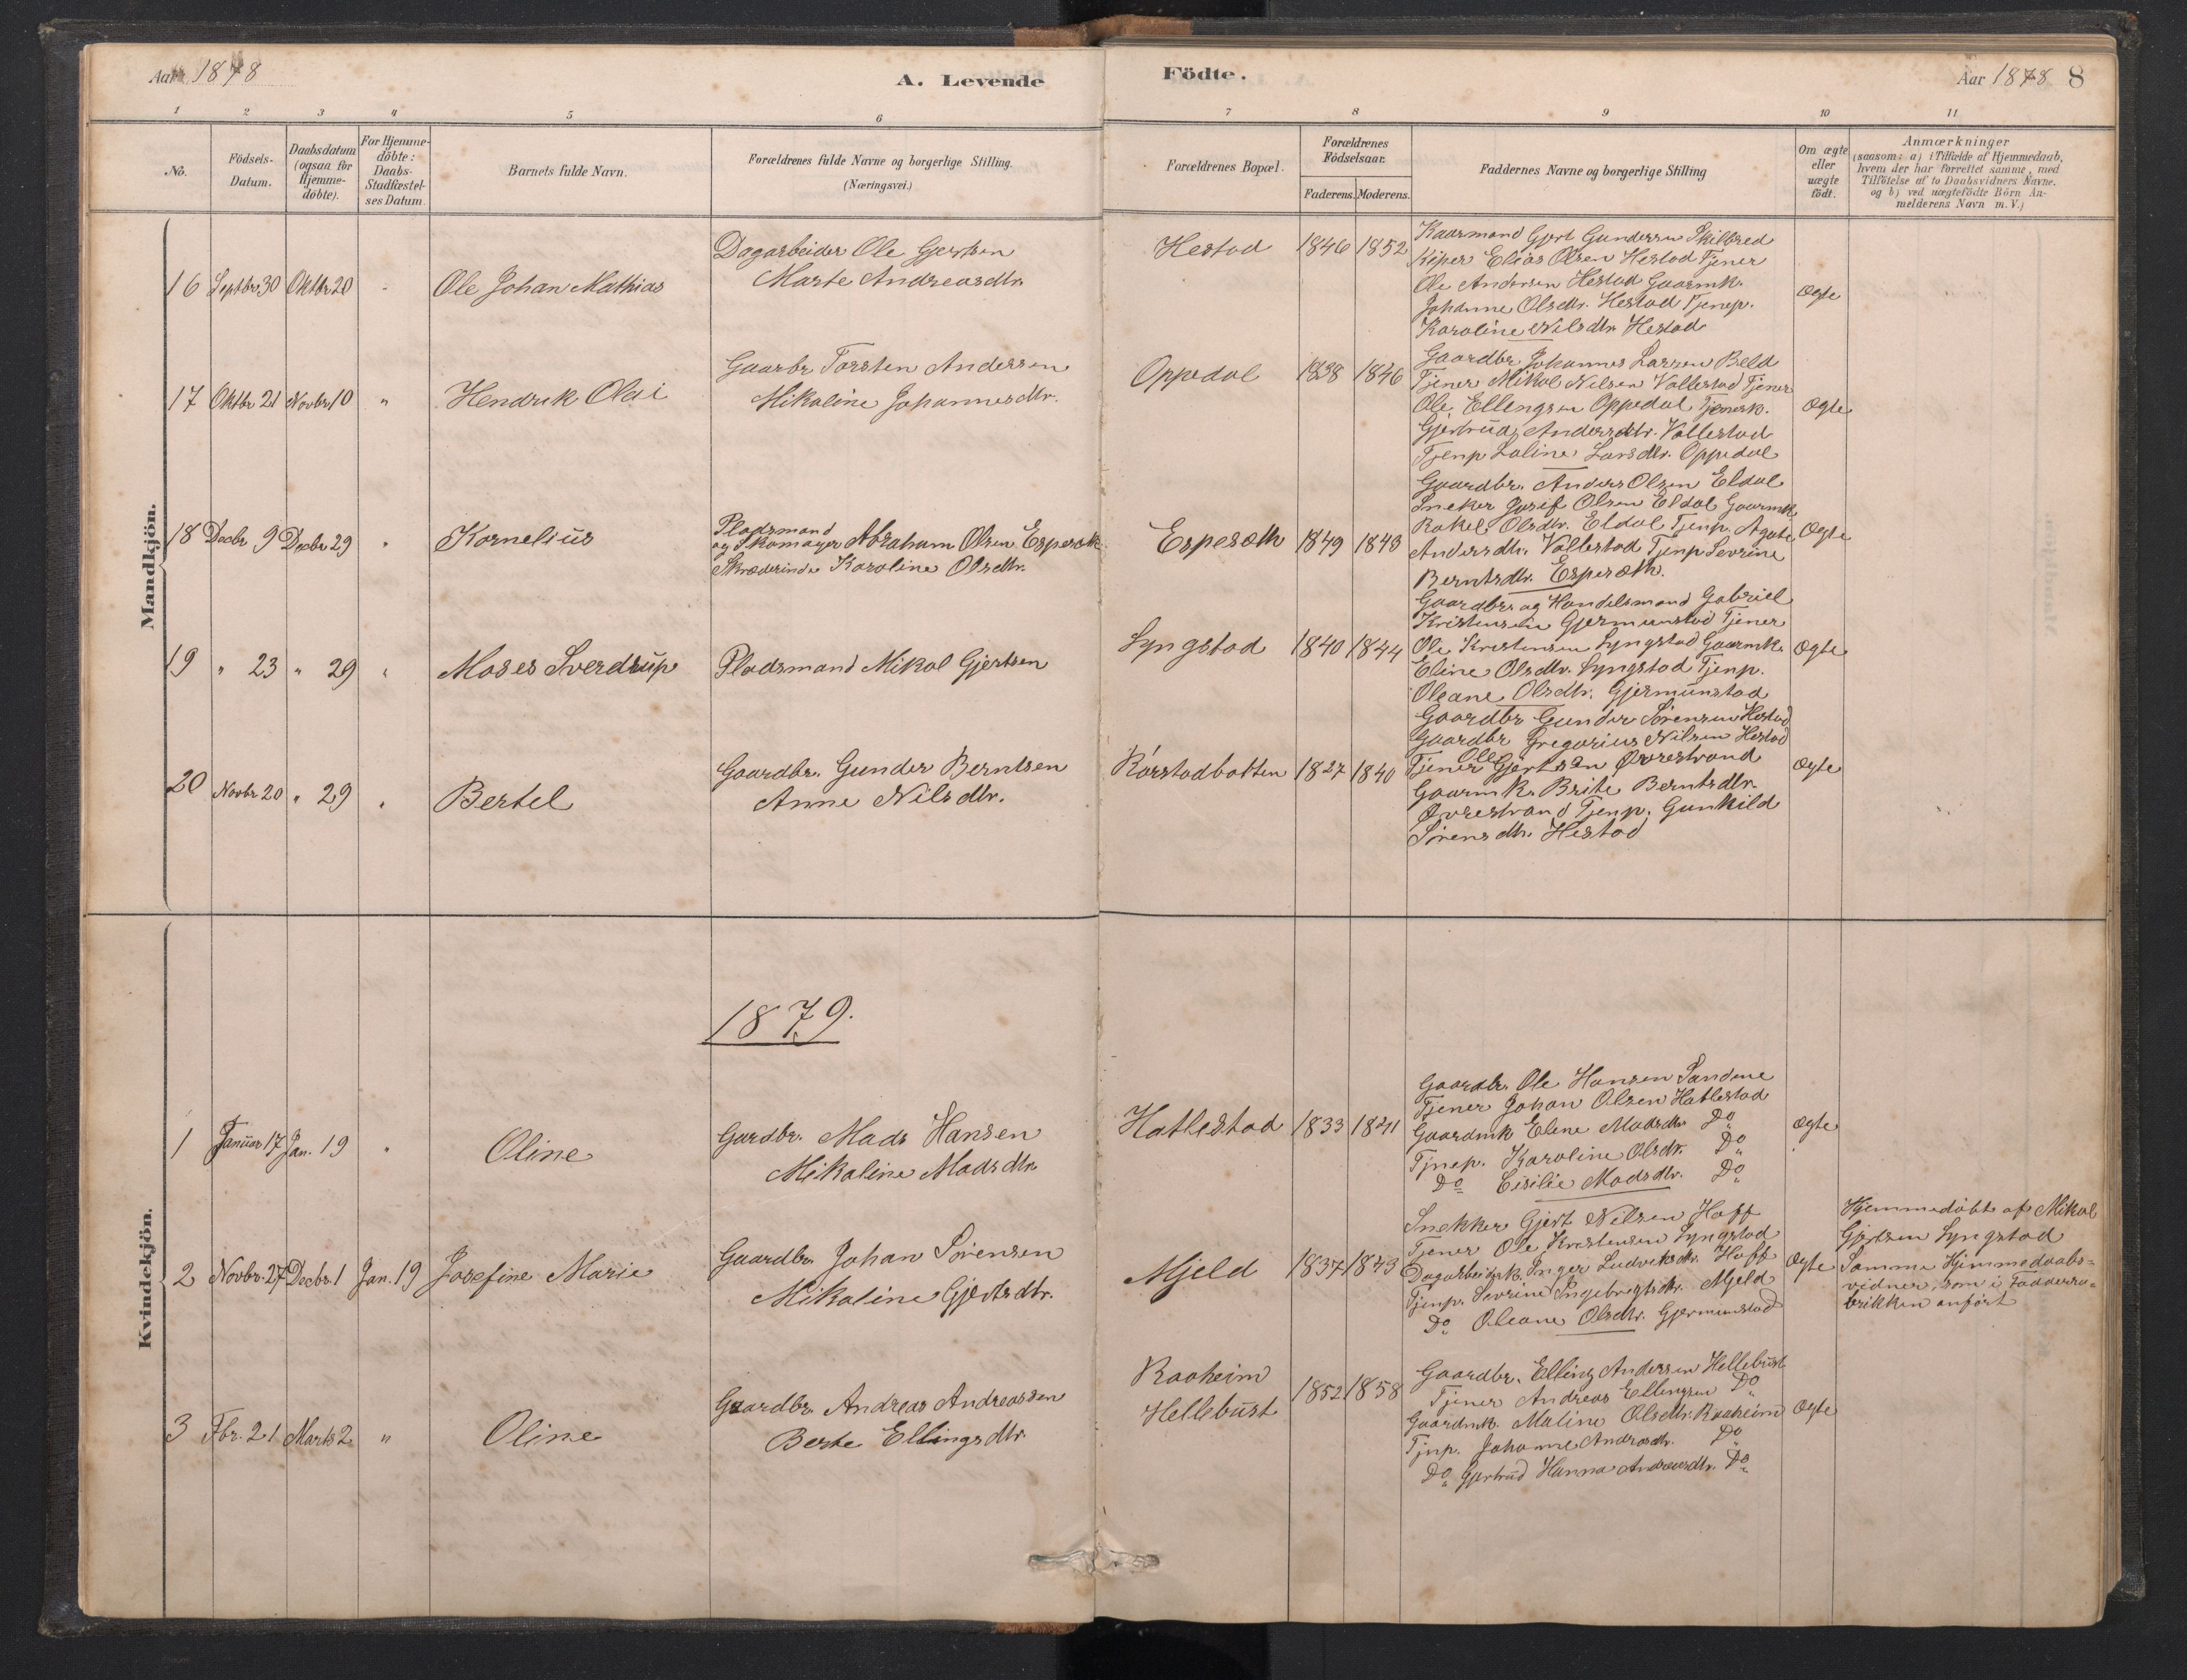 Aar 1878
A. Levende
1 2 3 4 5 6
No.
Födsels-
Datum.
Daabsdatum
(ogsaa for
Hjemme-
döbte).
For Hjemme-
döbte:
Daabs-
Stadfæstel-
ses Datum
Barnets fulde Navn.
Forældrenes fulde Navne og borgerlige Stilling.
(Næringsvei.)
Mandkjön.
16 Septbr 30 Oktbr 20 " Ole Johan Mathias
Dagarbeider Ole Gjertsen
Marte Andreasdtr.
17 Oktbr 21 Novbr 10 " Hendrik Olai
Gaarbr Torsten Andersen
Mikaline Johannesdtr.
18 Decbr 9 Decbr 29 " Kornelius
Pladsmand
og Skomager Abraham Olsen Espeseth
Skræderinde Karoline Olsdtr.
19 " 23 " 29 " Moses Sverdrup
Pladsmand Mikal Gjertsen
20 Novbr 20 " 29 " Bertel
Gaardbr. Gunder Berntsen
Anne Nilsdtr.
Kvindekjön.
1879.
1 Januar 17 Jan. 19 " Oline
Gardbr. Mads Hansen
Mikaline Madsdtr
2 Novbr. 27 Decbr. 1 Jan. 19 Josefine Marie
Gaardbr. Johan Sørensen
Mikaline Gjertsdtr.
3 Fbr. 21 Marts 2 " Oline
Gaardbr. Andreas Andreassen
Berte Ellingsdtr
Födte.
Aar 1878 8
7 8 9 10 11
Forældrenes Bopæl.
Forældrenes
Födselsaar.
Faderens. Moderens.
Faddernes Navne og borgerlige Stilling
Om ægte
eller
uægte
födt.
Anmærkninger
(saasom: a) i Tilfælde af Hjemmedaab,
hvem der har forrettet samme, med
Tilföielse af to Daabsvidners Navne.
og b) ved uægtefödte Börn An-
melderens Navn m. V.)
Hestad 1846 1852
Kaarmand Gjert Gundersen Skilbred
Kiper Elias Olsen Hestad Tjener
Ole Andersen Hestad Gaarmk.
Johanne Olsdtr. Hestad Tjenep.
Karoline Nilsdtr Hestad
Ægte
Oppedal 1838 1846
Gaardbr. Johannes Larsen Beld
Tjener Mikal Nilsen Vallestad Tjener
Ole Ellingsen Oppedal Tjenerk.
Gjertrud Andersdtr. Vallestad
Tjenp Laline Larsdtr. Oppedal
Ægte
Espeseth 1849 1848
Gaardbr. Anders Olsen Eldal
Sneker Josef Olsen Eldal Gaarmk
Rakel Olsdtr. Eldal Tjenp. Agate
Andersdtr. Vallestad Tjenp Sevrine
Berntsdtr. Espeseth.
Ægte
Syngstad 1840 1844
Gaardbr. og Handelsmand Gabriel
Kristensen Gjermunstad Tjener
Ole Kristensen Syngstad Gaarmk.
Eline Olsdtr. Syngstad Tjenp.
Oleane Olsdtr. Gjermunstad
Ægte
Rørstadbotten 1827 1840
Gaardbr Gunder Sørensen Hestad
Gaardbr Gregorius Nilsen Hestad
Tjener Ole Gjertsen Øvrestrand
Gaarmk. Brite Berntsdtr.
Øvrestrand Tjenp. Gunhild
Sørensdtr. Hestad
Ægte
Hatlestad 1833 1841
Gaardbr. Ole Hansen Sandene
Tjener Johan Olsen Hatlestad
Gaardmk Elene Madsdtr Do
Tjnep. Karoline Olsdtr. Do
Do Cisilie Madsdtr. Do
Ægte
Mjeld 1837 1843
Snekker Gjert Nilsen Hoff
Tjener Ole Kristensen Syngstad
Dagarbeidk. Inger Ludviksdtr. Hoff
Tjenp. Sevrine Ingebrigtsdtr. Mjeld
Do Oleane Olsdtr. Gjermunstad
Ægte
Hjemmedøbt af Mikal
Gjertsen Syngstad
Samme Hjemmedaabs-
vidner, som i Fadderru-
brikken anført
Raaheim
Hellebust
1852 1858
Gaardbr. Elling Andersen Hellebust
Tjener Andreas Ellingsen Do
Gaardmk. Maline Olsdtr. Raaheim
Tjnp. Johanne Andrsdtr. Do
Do Gjertrud Hanna Andreasdtr. Do
Ægte